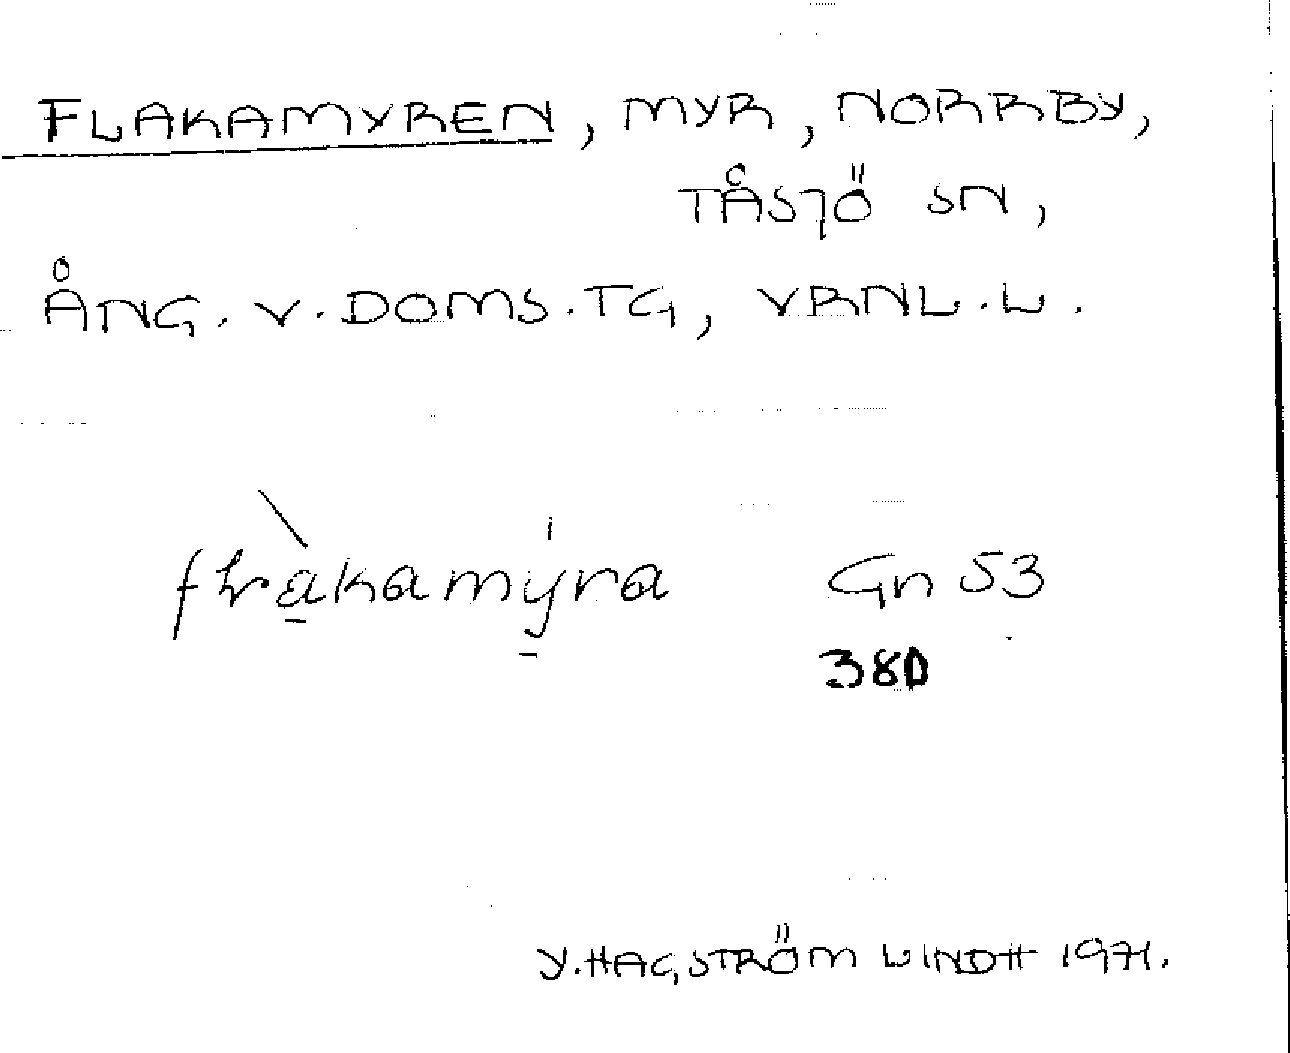 FLAKAMYREN, MYR, NORRBY,
TÅSJÖ SN,
ÅNG. V. DOMS.TG, VRNL.L.
Gn 53
380
Y. HAGSTRÖM LINDH 1971.